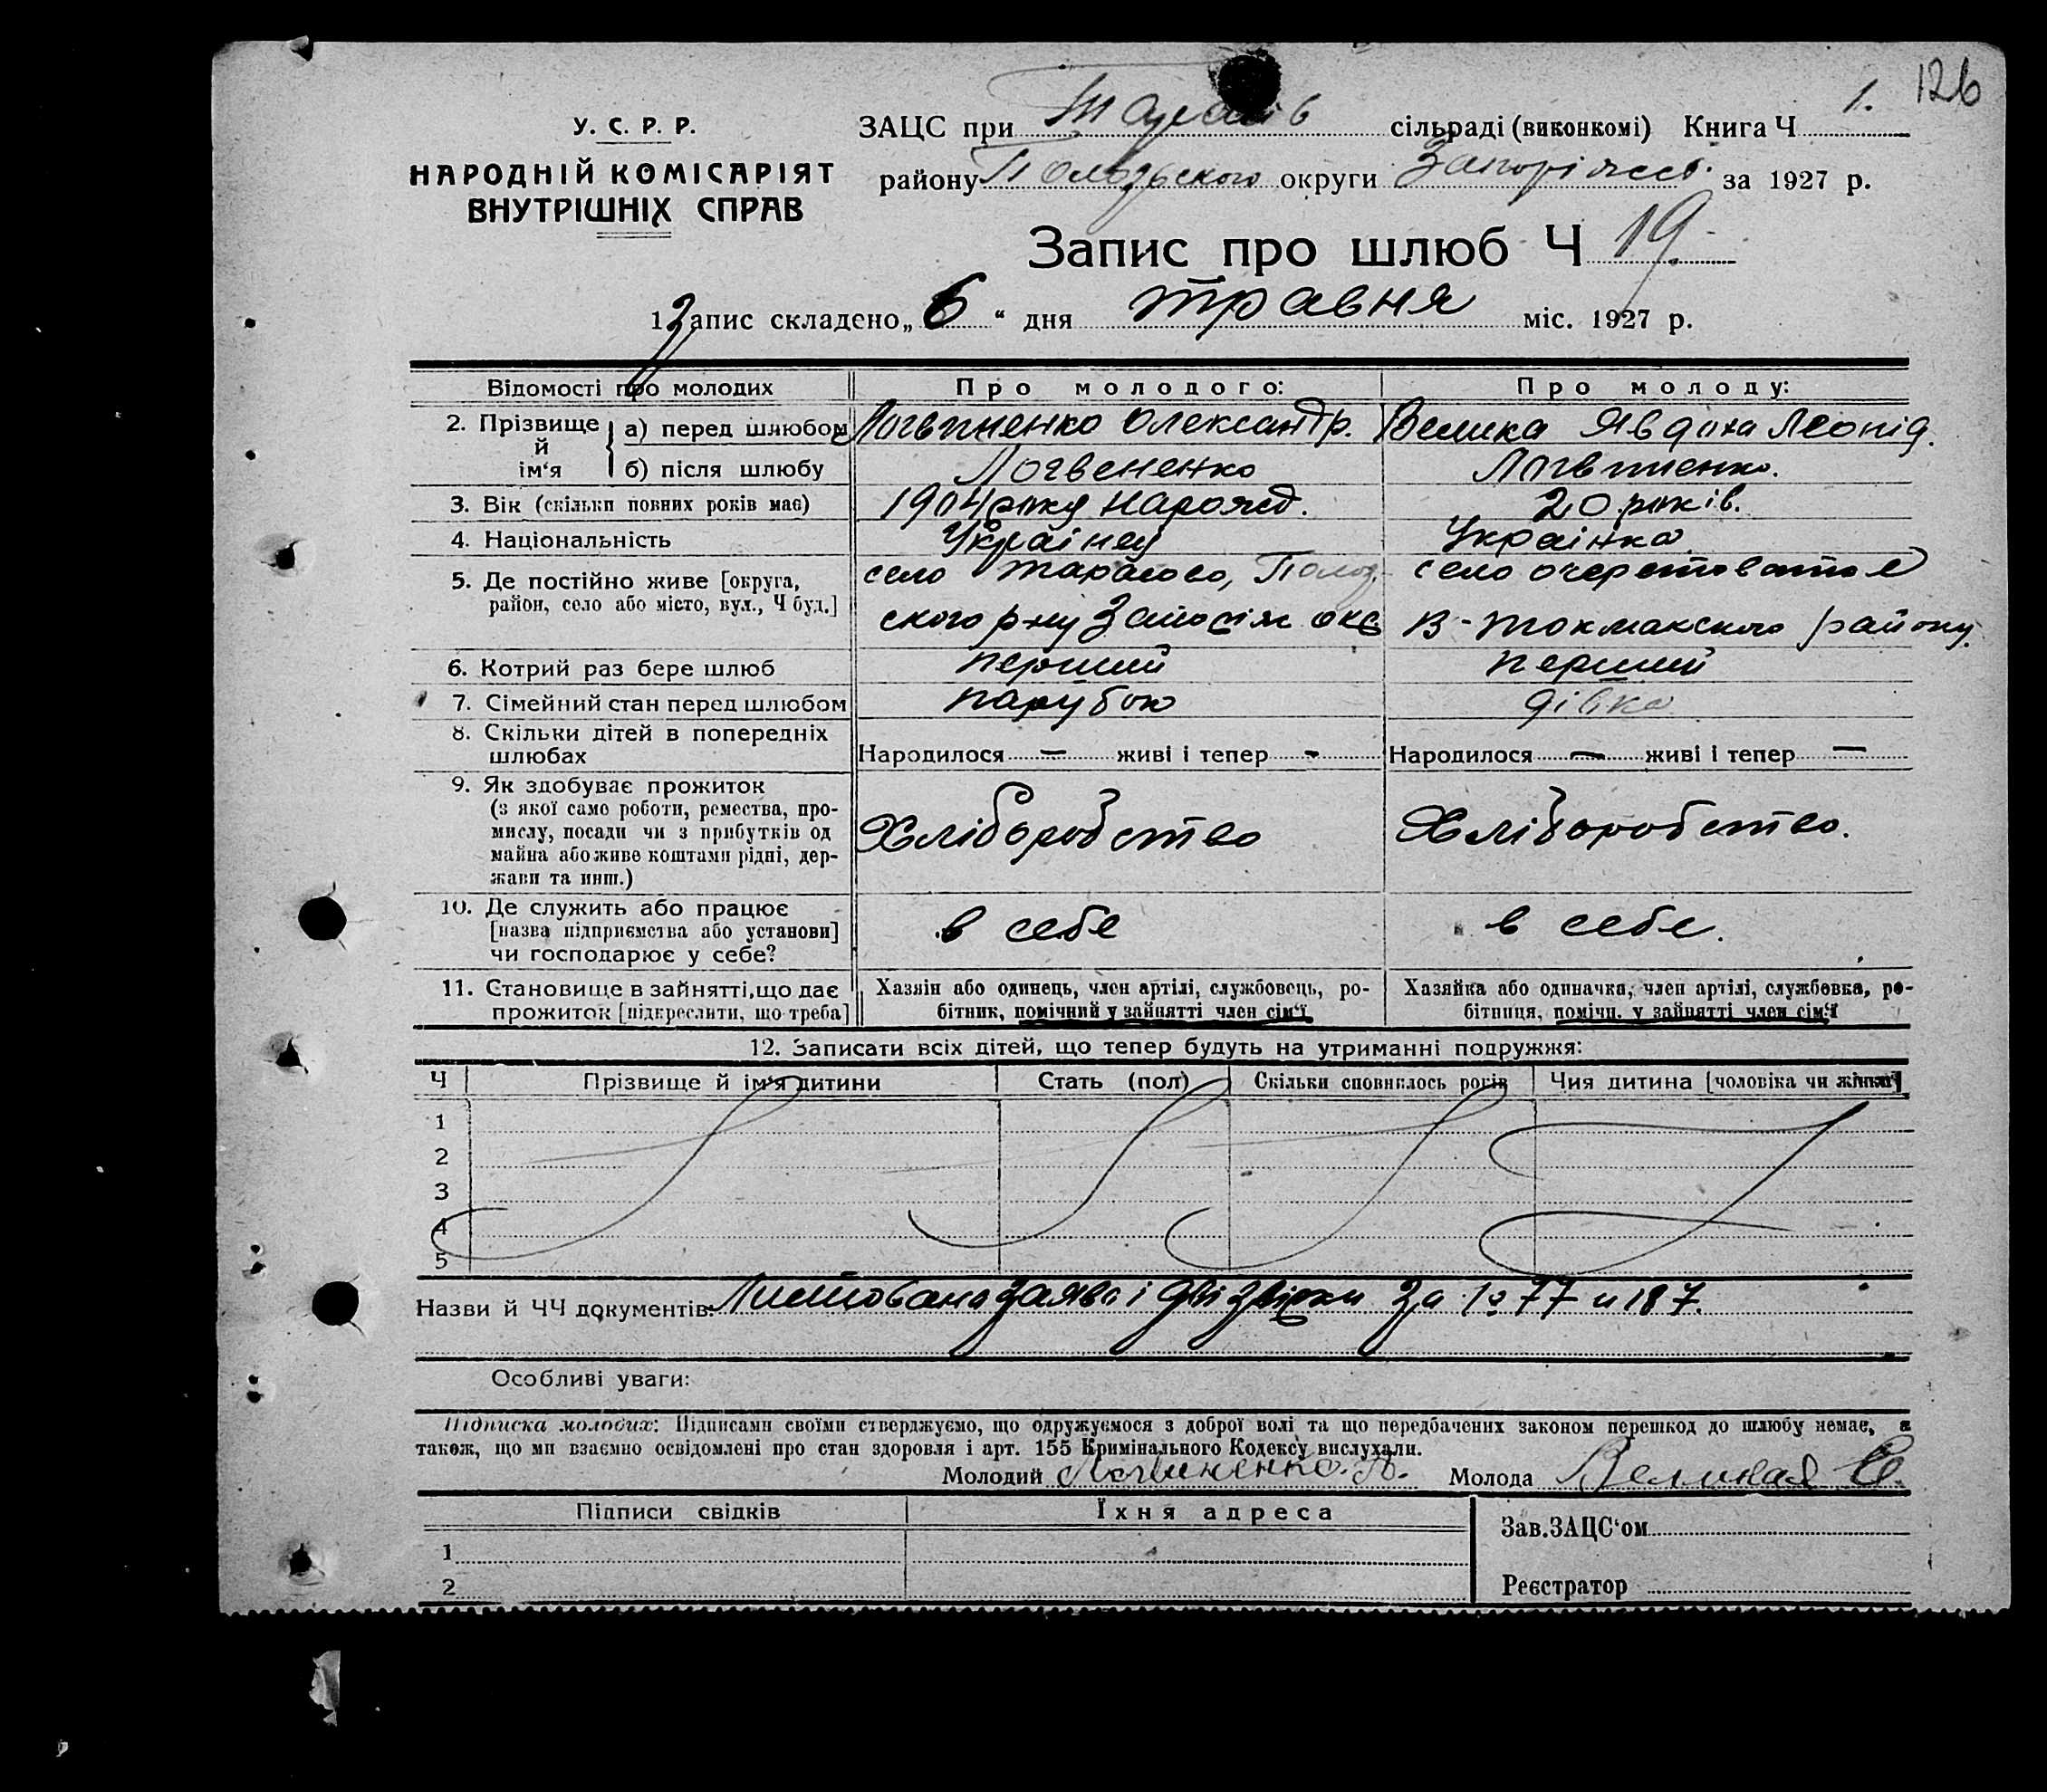 126
У. С. Р. Р.
НАРОДНІЙ КОМІСАРІЯТ
ВНУТРІШНІХ СПРАВ
ЗАЦС при сільраді (виконкомі) Книга Ч 1.
району Пологського округи Запоріжськ. за 1927 р.
Запис про шлюб Ч 19.
1 Запис складено „ 6 “ дня травня міс. 1927 р.
Відомості про молодих
Про молодого:
Про молоду:
2. Прізвище й ім‘я
а) перед шлюбом
Логвиненко Олександр.
Велика Явдоха Леонід.
б) після шлюбу
Логвененко
Логвиненко.
3. Вік (скільки повних років має)
1904 року народ.
20 років.
4. Національність
Українец
Українка
5. Де постійно живе [округа,
район, село або місто, вул., Ч буд.]
село Тарасово, Полог-
ского р-ну Запоріж окр
село очеретоватое
В-Токмакского району.
6. Котрий раз бере шлюб
перший
перший
7. Сімейний стан перед шлюбом
парубок
дівка
8. Скільки дітей в попередніх
шлюбах
Народилося — живі і тепер -
Народилося — живі і тепер —
9. Як здобуває прожиток
(з якої само роботи, ремества, про-
мислу, посади чи з прибутків од
майна або живе коштами рідні, дер-
жави та инш.)
Хліборобство
Хліборобство.
10. Де служить або працює
[назва підприємства або установи]
чи господарює у себе?
в себе
в себе.
11. Становище в зайнятті, що дає
прожиток [підкреслити, що треба]
Хазяін або одинець, член артілі, службовець, ро-
бітник, помічний у зайнятті член сім‘ї
Хазяйка або одиначка, член артілі, службовка, ро-
бітниця, помічн. у зайнятті член сім‘ї
12. Записати всіх дітей, що тепер будуть на утриманні подружжя:
Ч
Прізвище й ім‘я дитини
Стать (пол)
Скільки сповнилось років
Чия дитина [чоловіка чи жінки]
1
2
3
4
5
Назви й ЧЧ документів: заява і дві звірки за № 77 и 187.
Особливі уваги:
Підписка молодих: Підписами своїми стверджуємо, що одружуємося з доброї волі та що передбачених законом перешкод до шлюбу немає, а
також, що ми взаємно освідомлені про стан здоровля і арт. 155 Кримінального Кодексу вислухали.
Молодий Логвиненко. А. Молода Великая Е.
Підписи свідків
Їхня адреса
1
2
Зав.ЗАЦС‘ом
Реєстратор